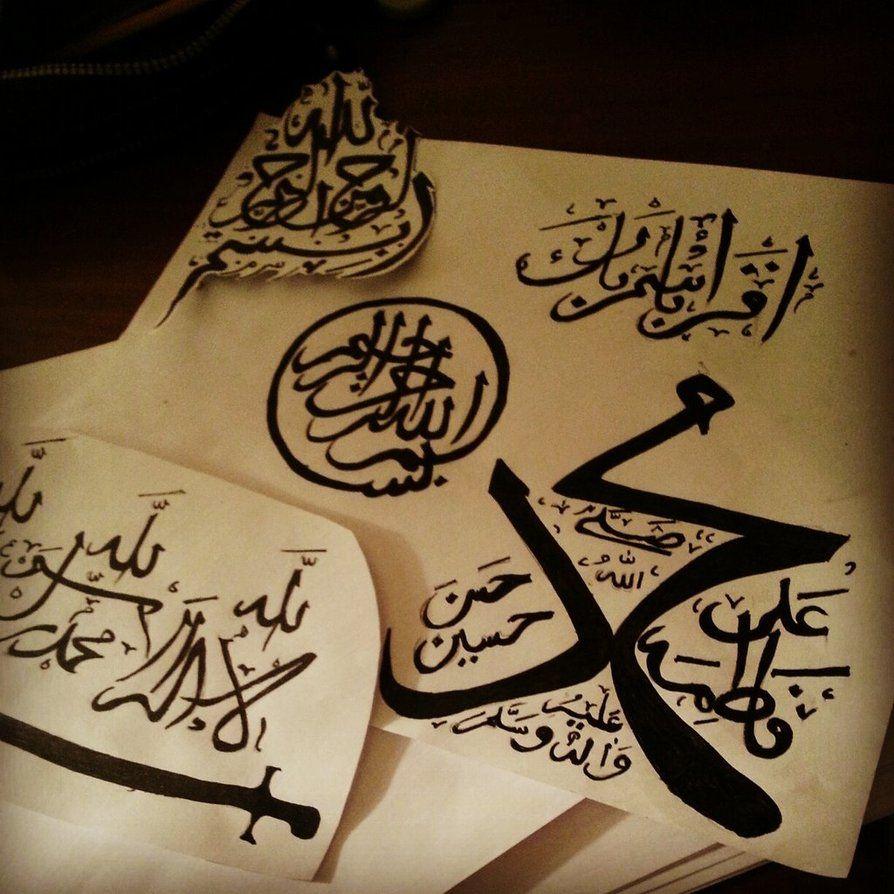 بسم الله الرحمن الرحيم
اقرأ باسم ربك
بسم الله الرحمن الرحيم
محمد
صلى
الله
عليه
وآله وسلم
علي
فاطمة
حسن
حسين
لا إله إلا الله
محمد رسول الله